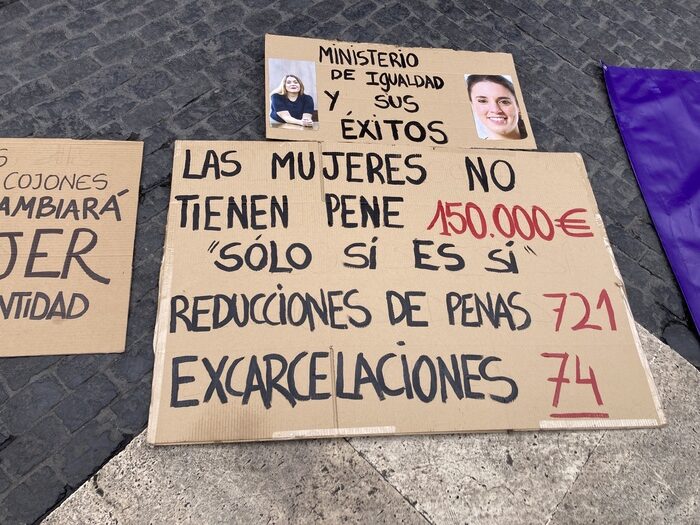 MINISTERIO
DE IGUALDAD
Y SUS
ÉXITOS
LAS MUJERES NO
TIENEN PENE 150.000€
"SÓLO SÍ ES SÍ"
REDUCCIONES DE PENAS 721
EXCARCELACIONES 74
COJONES
AMBIARÁ
JER
NTIDAD